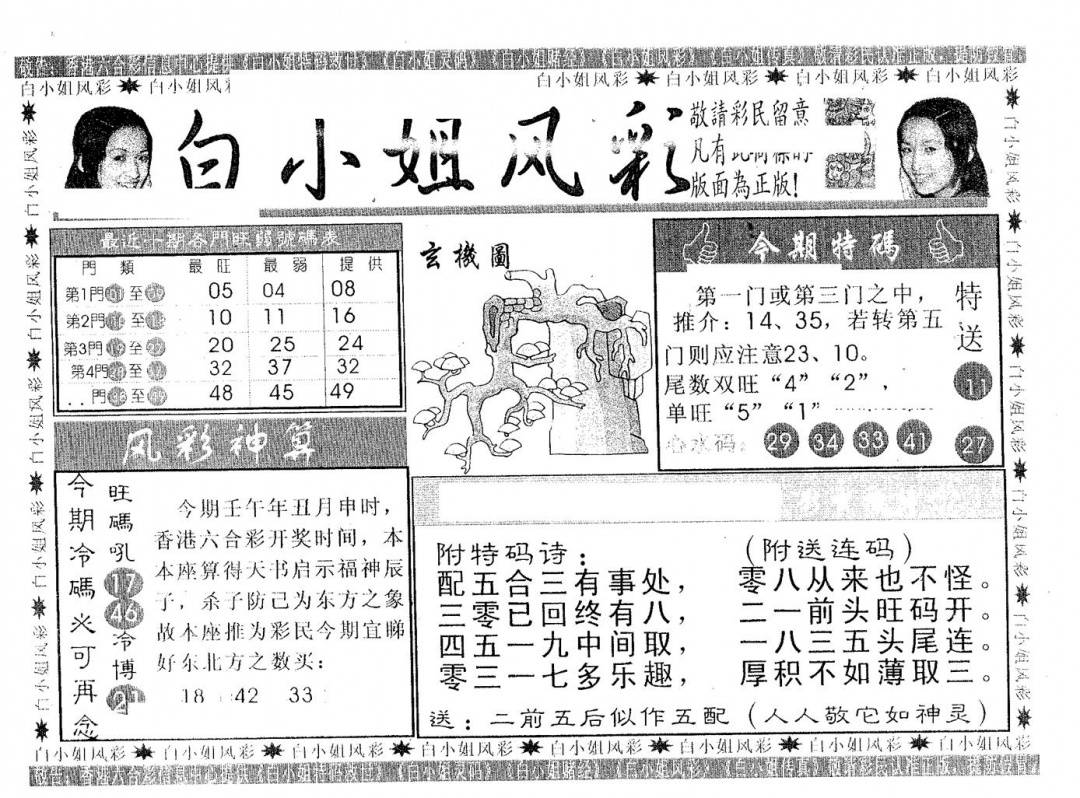 敬告：香港六合彩信息中心提供《白小姐特码救世》《白小姐灵码》《白小姐赌经》《白小姐风彩》《白小姐传真》敬请彩民认准正版，提防假冒
白小姐风彩 白小姐风彩 白小姐风彩 白小姐风彩 白小姐风彩 白小姐风彩
白小姐风彩
敬請彩民留意
凡有此商標的
版面為正版!
最近十期各門旺弱號碼表
門類 最旺 最弱 提供
第1門 01 至 09 05 04 08
第2門 至 10 11 16
第3門 19 至 27 20 25 24
第4門 至 32 37 32
門 至 48 45 49
玄機圖
今期特碼
第一门或第三门之中，
推介：14、35，若转第五
门则应注意23、10。
尾数双旺“4”“2”，
单旺“5”“1”
心水码：29 34 33 41
特送
11
27
风彩神算
今期冷碼火可再念
旺碼吼
17
46
冷博
21
今期壬午年丑月申时，
香港六合彩开奖时间，本
本座算得天书启示福神辰
子，杀子防己为东方之象
故本座推为彩民今期宜睇
好东北方之数买：
18 42 33
附特码诗： （附送连码）
配五合三有事处， 零八从来也不怪。
三零已回终有八， 二一前头旺码开。
四五一九中间取， 一八三五头尾连。
零三一七多乐趣， 厚积不如薄取三。
送：二前五后似作五配（人人敬它如神灵）
白小姐风彩 白小姐风彩 白小姐风彩 白小姐风彩 白小姐风彩 白小姐风彩 白小姐风彩 白小姐风彩
敬告：香港六合彩信息中心提供《白小姐特码救世》《白小姐灵码》《白小姐赌经》《白小姐风彩》《白小姐传真》敬请彩民认准正版，提防假冒